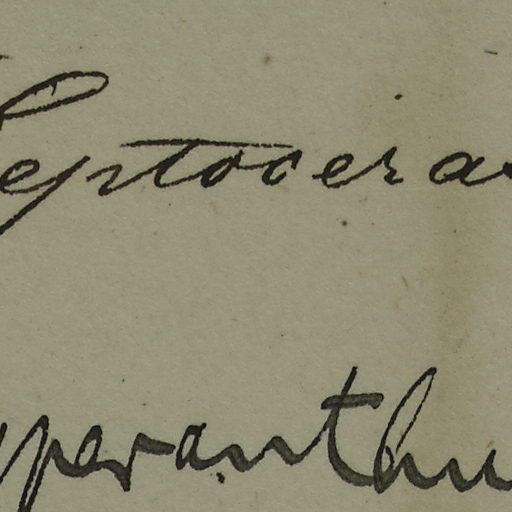 Leptoceras
yperanthu